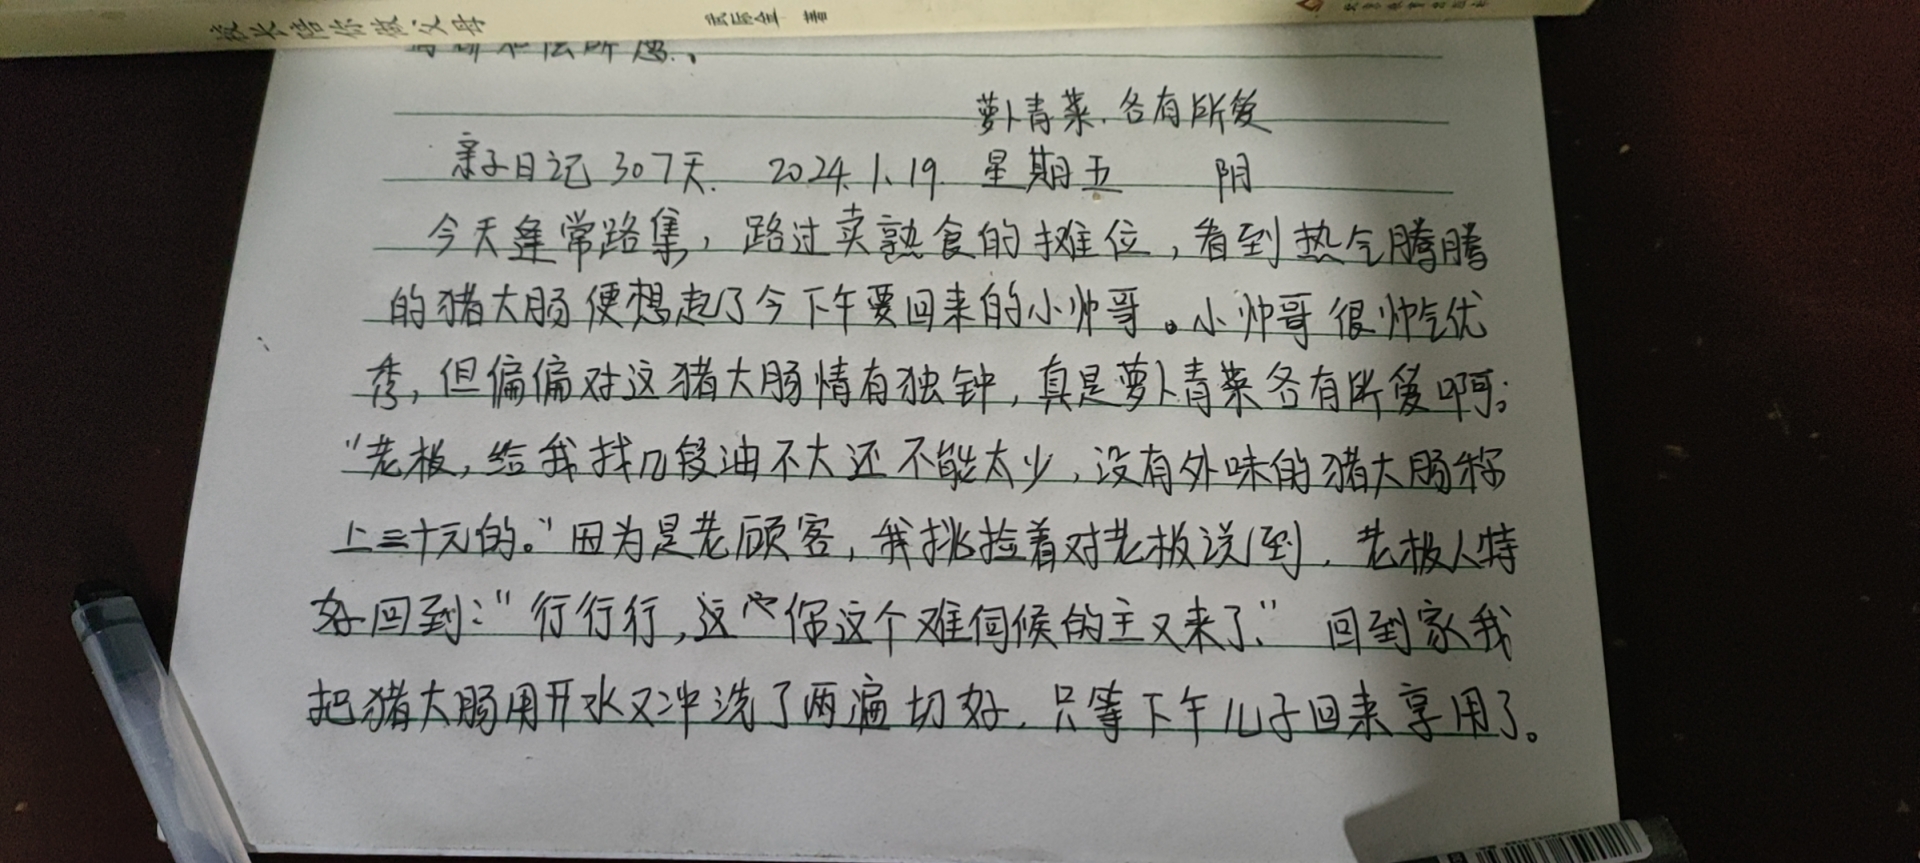 校长培你做父母 著
萝卜青菜.各有所爱
亲子日记307天. 2024.1.19. 星期五 阴
今天逢常路集，路过卖熟食的摊位，看到热气腾腾
的猪大肠便想起了今下午要回来的小帅哥。小帅哥很帅气优
秀，但偏偏对这猪大肠情有独钟，真是萝卜青菜各有所爱啊；
“老板，给我找几段油不大还不能太少，没有外味的猪大肠称
上三十元的。”因为是老顾客，我挑捡着对老板说到，老板人特
好回到：“行行行，这 你这个难伺候的主又来了.”回到家我
把猪大肠用开水又冲洗了两遍切好，只等下午儿子回来享用了。